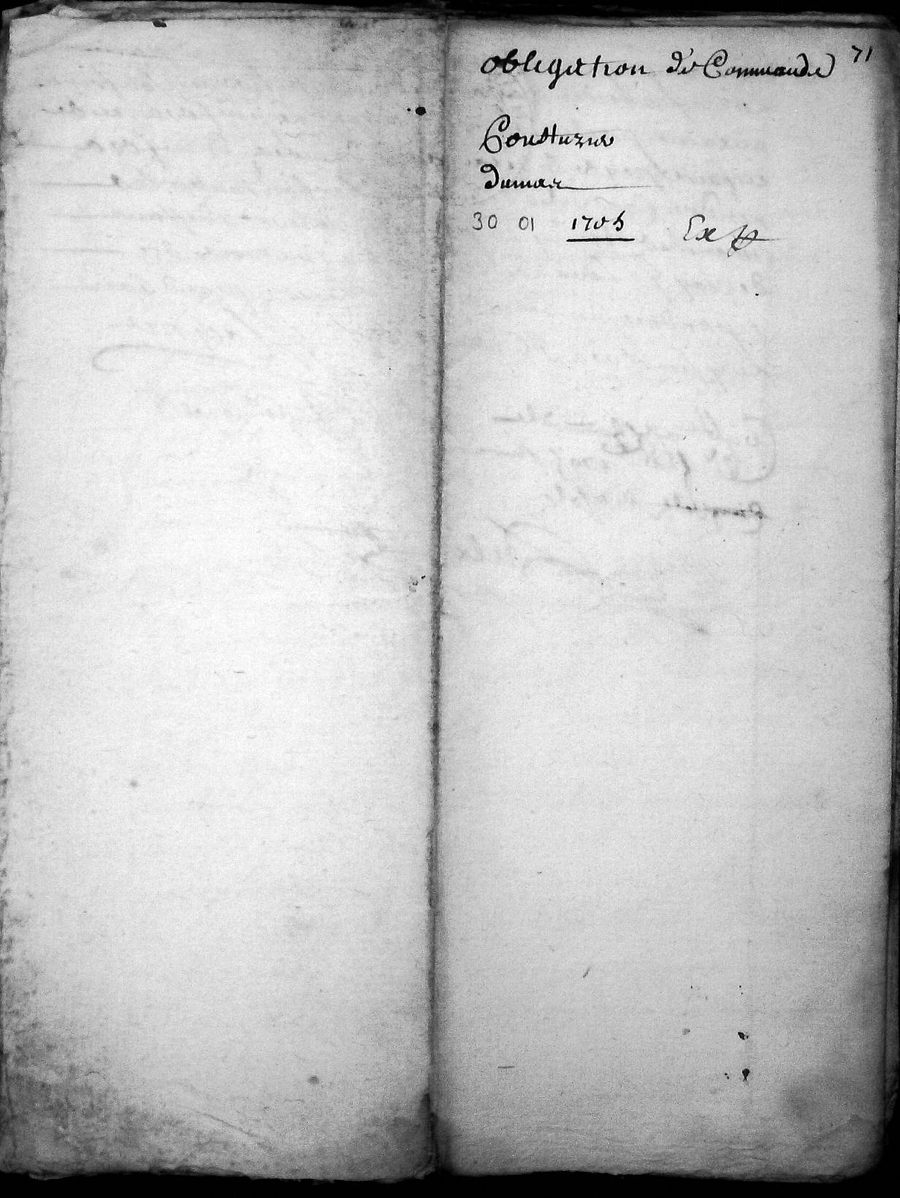 71
obligation de Commande
Couturier
dumas
30 01 1705 Exp